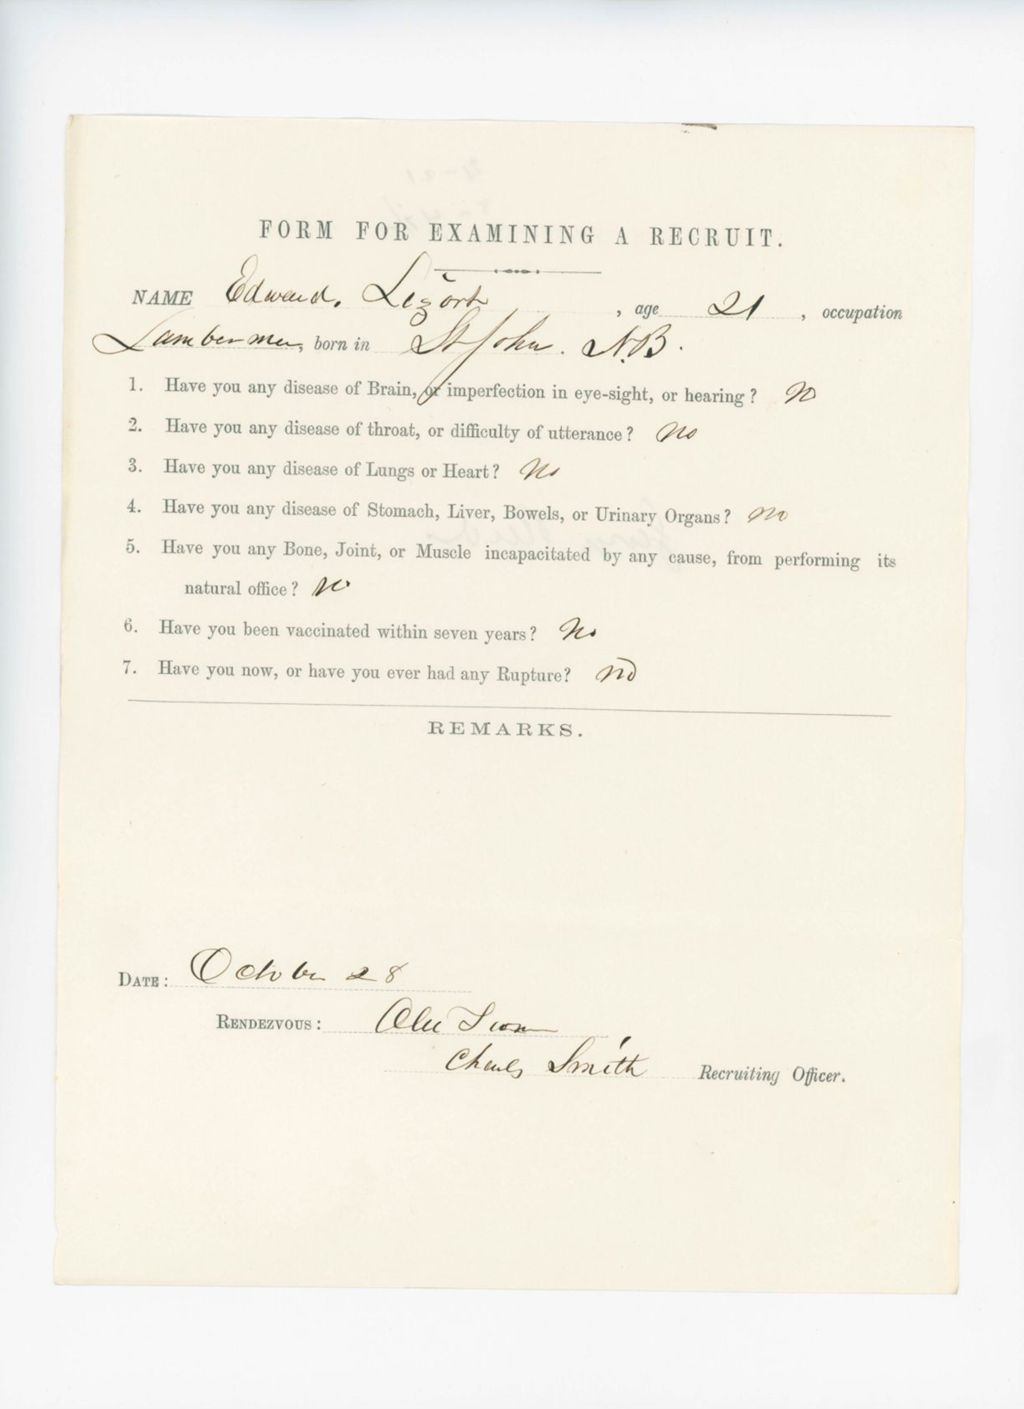 FORM FOR EXAMINING A RECRUIT.
NAME Edward. , age 21 , occupation
born in St John. N.B.
1. Have you any disease of Brain, or imperfection in eye-sight, or hearing? No
2. Have you any disease of throat, or difficulty of utterance? No
3. Have you any disease of Lungs or Heart? No
4. Have you any disease of Stomach, Liver, Bowels, or Urinary Organs? no
5. Have you any Bone, Joint, or Muscle incapacitated by any cause, from performing its
natural office? no
6. Have you been vaccinated within seven years? No
7. Have you now, or have you ever had any Rupture? no
REMARKS.
DATE: October 28
RENDEZVOUS:
Charles Smith Recruiting Officer.